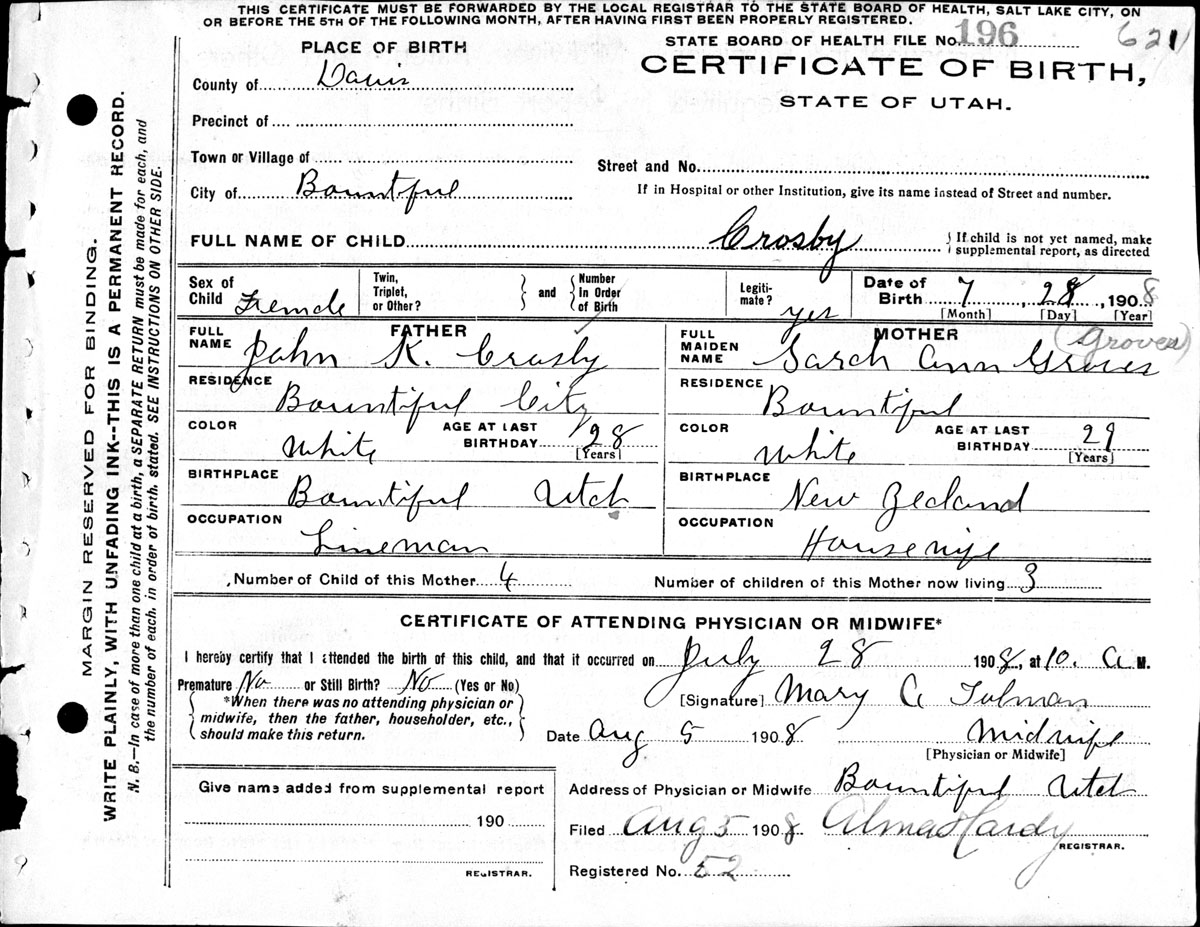 THIS CERTIFICATE MUST BE FORWARDED BY THE LOCAL REGISTRAR TO THE STATE BOARD OF HEALTH, SALT LAKE CITY, ON
OR BEFORE THE 5TH OF THE FOLLOWING MONTH, AFTER HAVING FIRST BEEN PROPERLY REGISTERED.
STATE BOARD OF HEALTH FILE No. 196 621
PLACE OF BIRTH
CERTIFICATE OF BIRTH,
STATE OF UTAH.
County of Davis
Precinct of
Town or Village of
Street and No.
City of Bountiful
If in Hospital or other Institution, give its name instead of Street and number.
FULL NAME OF CHILD Crosby
If child is not yet named, make
supplemental report, as directed
Sex of Child Female
Twin, Triplet, or Other?
and Number In Order of Birth
Legiti- mate? yes
Date of Birth 7, 28, 1908
[Month] [Day] [Year]
FATHER
FULL NAME John K. Crosby
RESIDENCE Bountiful City
COLOR White AGE AT LAST BIRTHDAY 28 [Years]
BIRTHPLACE Bountiful Utah
OCCUPATION Lineman
MOTHER (Groves)
FULL MAIDEN NAME Sarah Ann Groves
RESIDENCE Bountiful
COLOR White AGE AT LAST BIRTHDAY 29 [Years]
BIRTHPLACE New Zealand
OCCUPATION Housewife
Number of Child of this Mother 4 Number of children of this Mother now living 3
CERTIFICATE OF ATTENDING PHYSICIAN OR MIDWIFE*
I hereby certify that I attended the birth of this child, and that it occurred on July 28 1908, at 10. A M.
Premature No or Still Birth? No (Yes or No)
*When there was no attending physician or
midwife, then the father, householder, etc.,
should make this return.
[Signature] Mary C Tolman
Date Aug 5 1908 Midwife
[Physician or Midwife]
Give name added from supplemental report
190
REGISTRAR.
Address of Physician or Midwife Bountiful Utah
Filed Aug 5 1908 Alma Hardy
REGISTRAR.
Registered No. 52
MARGIN RESERVED FOR BINDING.
WRITE PLAINLY, WITH UNFADING INK--THIS IS A PERMANENT RECORD.
N. B.—In case of more than one child at a birth, a SEPARATE RETURN must be made for each, and
the number of each, in order of birth, stated. SEE INSTRUCTIONS ON OTHER SIDE.